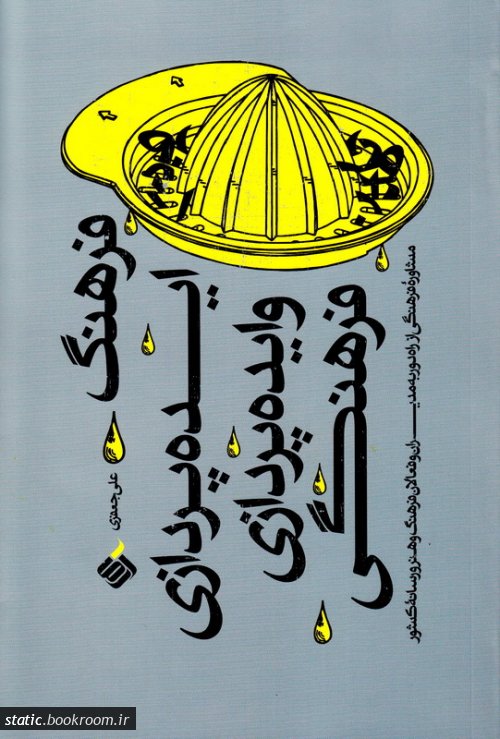 فرهنگ
ایده‌پردازی
و ایده‌پردازی
فرهنگی
مشاورهٔ فرهنگی از راه دور به مدیران و فعالان فرهنگ و هنر و رسانهٔ کشور
علی جعفری
static.bookroom.ir